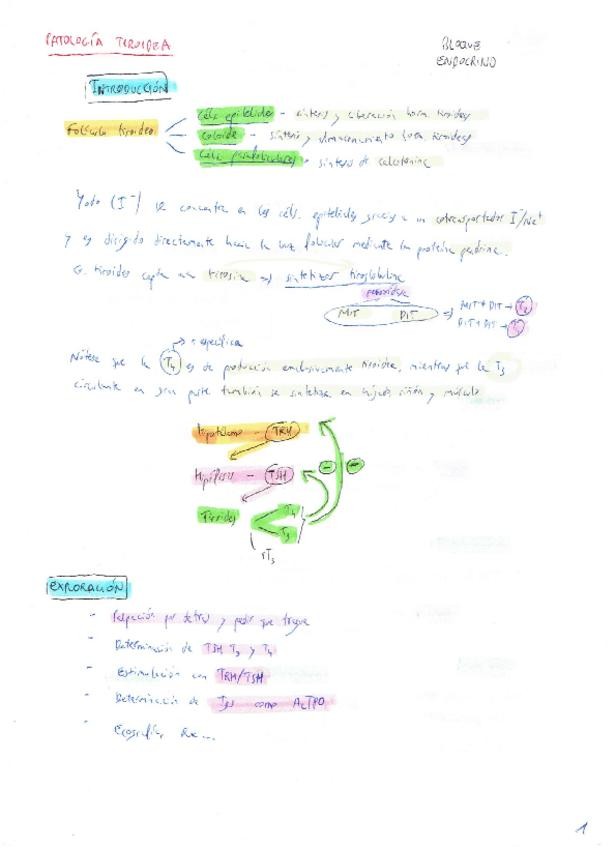 PATOLOGÍA TIROIDEA
BLOQUE
ENDOCRINO
INTRODUCCIÓN
Folículo tiroideo
Céls epiteliales - síntesis y liberación horm. tiroideas
Coloide - síntesis y almacenamiento horm. tiroideas
Céls parafoliculares - síntesis de calcitonina
Yodo (I⁻) se concentra en las céls. epiteliales gracias a un cotransportador I⁻/Na⁺
y es dirigido directamente hacia la luz folicular mediante la proteína pendrina.
G. tiroides capta una tirosina => sintetizar tiroglobulina
peroxidasa
MIT DIT => MIT + DIT → T3
DIT + DIT → T4
↑ específica
Nótese que la T4 es de producción exclusivamente tiroidea, mientras que la T3
circulante en gran parte también se sintetiza en hígado, riñón y músculo
Hipotálamo - TRH
Hipófisis - TSH
Tiroides
T4
T3
rT3
EXPLORACIÓN
- Palpación por detrás y pedir que trague
- Determinación de TSH T3 y T4
- Estimulación con TRH/TSH
- Determinación de Igs como AcTPO
- Ecografía, Rx...
1